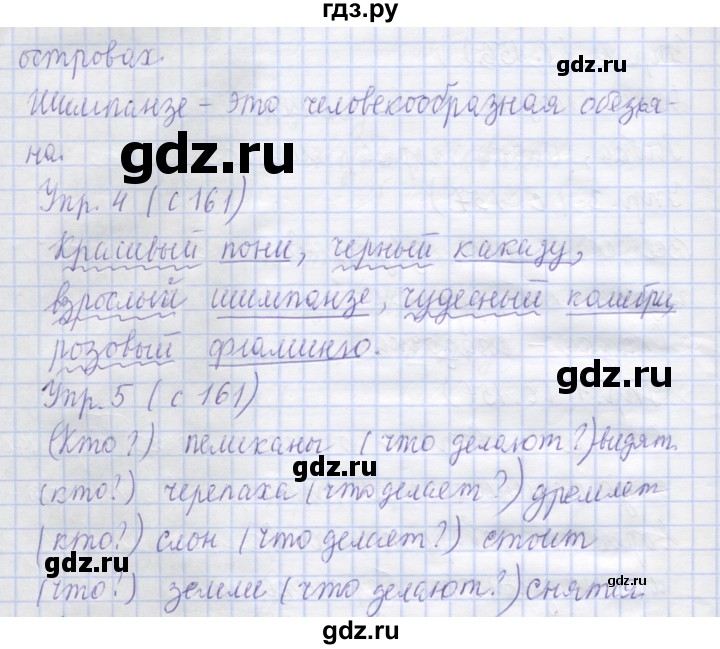 гдз.ру
островах.
Шимпанзе – это человекообразная обезья-
на.
gdz.ru
Упр. 4 (с 161)
Красивый пони, черный каказу,
взрослый шимпанзе, чудесный колибри,
розовый фламинго.
Упр. 5 (с 161)
(Кто?) пеликаны (что делают?) видят
gdz.ru
(кто?) черепаха (что делает?) дремлет
(кто?) слон (что делает?) стоит
gdz.ru
(что?) земли (что делают?) снятся.
gdz.ru